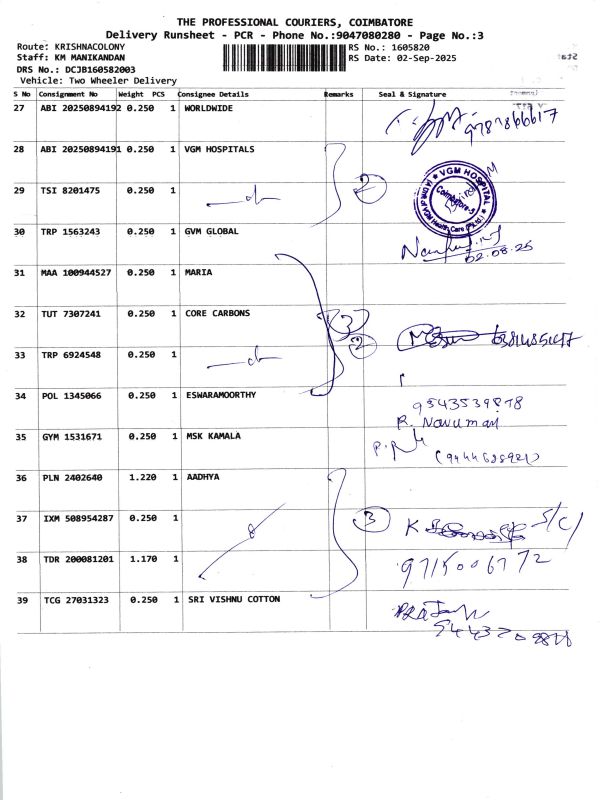 THE PROFESSIONAL COURIERS, COIMBATORE
Delivery Runsheet - PCR - Phone No.:9047080280 - Page No.:3
Route: KRISHNACOLONY RS No.: 1605820
Staff: KM MANIKANDAN RS Date: 02-Sep-2025
DRS No.: DCJB160582003
Vehicle: Two Wheeler Delivery
S No Consignment No Weight PCS Consignee Details Remarks Seal & Signature
27 ABI 20250894192 0.250 1 WORLDWIDE
28 ABI 20250894191 0.250 1 VGM HOSPITALS
2
VGM HOSPITAL
Coimbatore-5
29 TSI 8201475 0.250 1 —do
30 TRP 1563243 0.250 1 GVM GLOBAL
02.08.25
31 MAA 100944527 0.250 1 MARIA
32 TUT 7307241 0.250 1 CORE CARBONS
2
33 TRP 6924548 0.250 1 —do
34 POL 1345066 0.250 1 ESWARAMOORTHY
9543539878
R. Navumari
35 GYM 1531671 0.250 1 MSK KAMALA
36 PLN 2402640 1.220 1 AADHYA
37 IXM 508954287 0.250 1
3
38 TDR 200081201 1.170 1
9715006772
39 TCG 27031323 0.250 1 SRI VISHNU COTTON